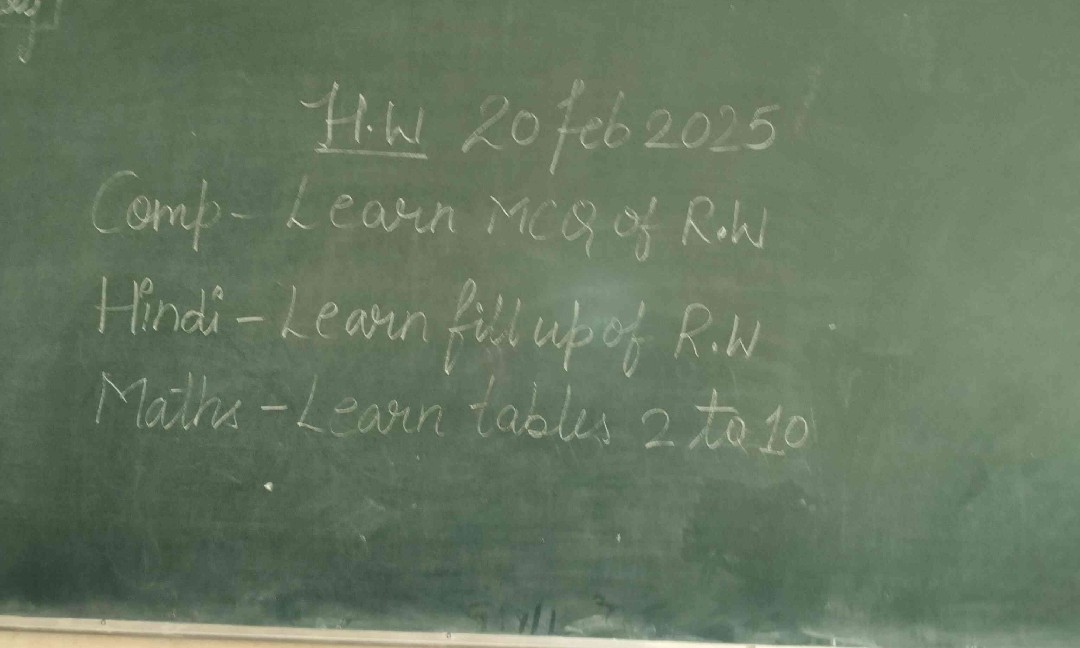 H.W 20 feb 2025
Comp - Learn MCQ of R.W
Hindi - Learn fill up of R.W
Maths - Learn tables 2 to 10